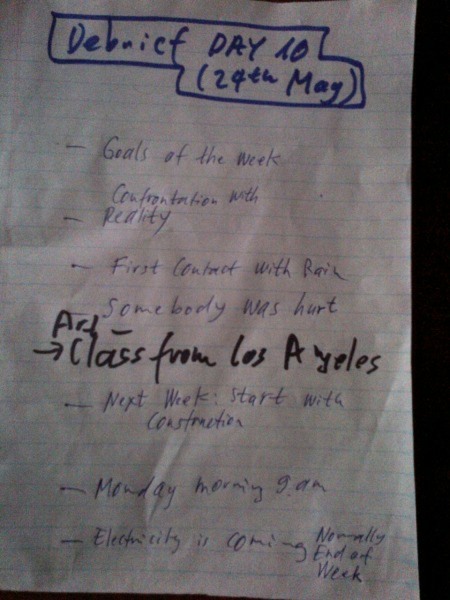 Debrief DAY 10
(24th May)
— Goals of the week
Confrontation with
— Reality
— First Contact with Rain
Somebody was hurt
Art —
→ Class from Los Angeles
— Next Week: Start with
Construction
— Monday morning 9 am
— Electricity is coming Normally
End of
Week